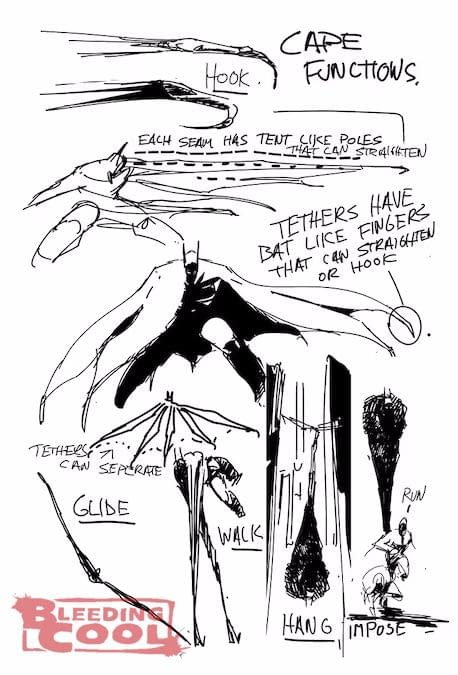 CAPE
FUNCTIONS.
HOOK.
EACH SEAM HAS TENT LIKE POLES
THAT CAN STRAIGHTEN
TETHERS HAVE
BAT LIKE FINGERS
THAT CAN STRAIGHTEN
OR HOOK
TETHERS
CAN SEPERATE
GLIDE
WALK
RUN
HANG
IMPOSE
BLEEDING
COOL